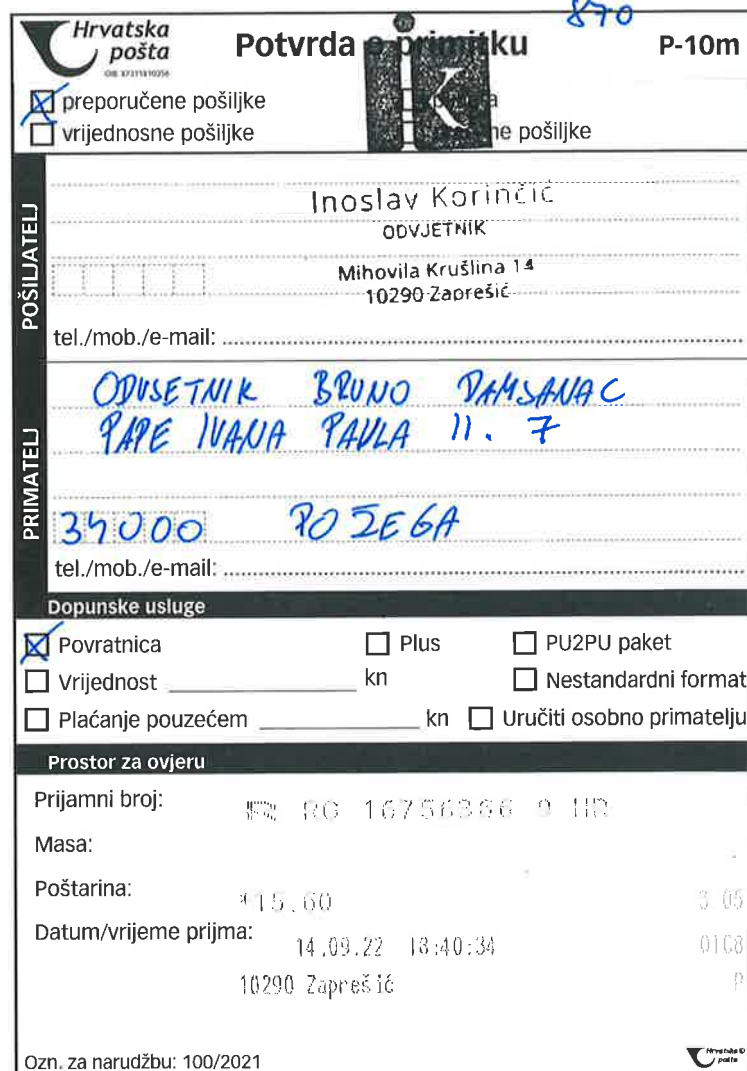 870
Hrvatska pošta
Potvrda o primitku
P-10m
OIB 87311810356
preporučene pošiljke
vrijednosne pošiljke
pošiljke
POŠILJATELJ
Inoslav Korinčić
ODVJETNIK
Mihovila Krušlina 14
10290 Zaprešić
tel./mob./e-mail:
PRIMATELJ
ODVJETNIK BRUNO DAMJANAC
PAPE IVANA PAVLA II. 7
34000 POŽEGA
tel./mob./e-mail:
Dopunske usluge
Povratnica Plus PU2PU paket
Vrijednost kn Nestandardni format
Plaćanje pouzećem kn Uručiti osobno primatelju
Prostor za ovjeru
Prijamni broj: RG 9 HR
Masa:
Poštarina: *15,60
Datum/vrijeme prijma: 14.09.22 18:40:34
10290 Zaprešić
Ozn. za narudžbu: 100/2021
Hrvatska pošta